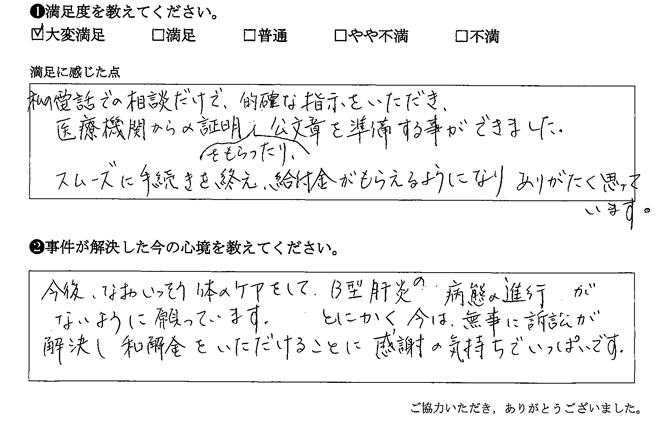 ❶満足度を教えてください。
☑大変満足 □満足 □普通 □やや不満 □不満
満足に感じた点
私の電話での相談だけで、的確な指示をいただき、
医療機関からの証明、公文章を準備する事ができました。
をもらったり、
スムーズに手続きを終え、給付金がもらえるようになり ありがたく思って
います。
❷事件が解決した今の心境を教えてください。
今後、なおいっそう体のケアをして、B型肝炎の病態の進行が
ないように願っています。 とにかく今は、無事に訴訟が
解決し和解金をいただけることに感謝の気持ちでいっぱいです。
ご協力いただき，ありがとうございました。